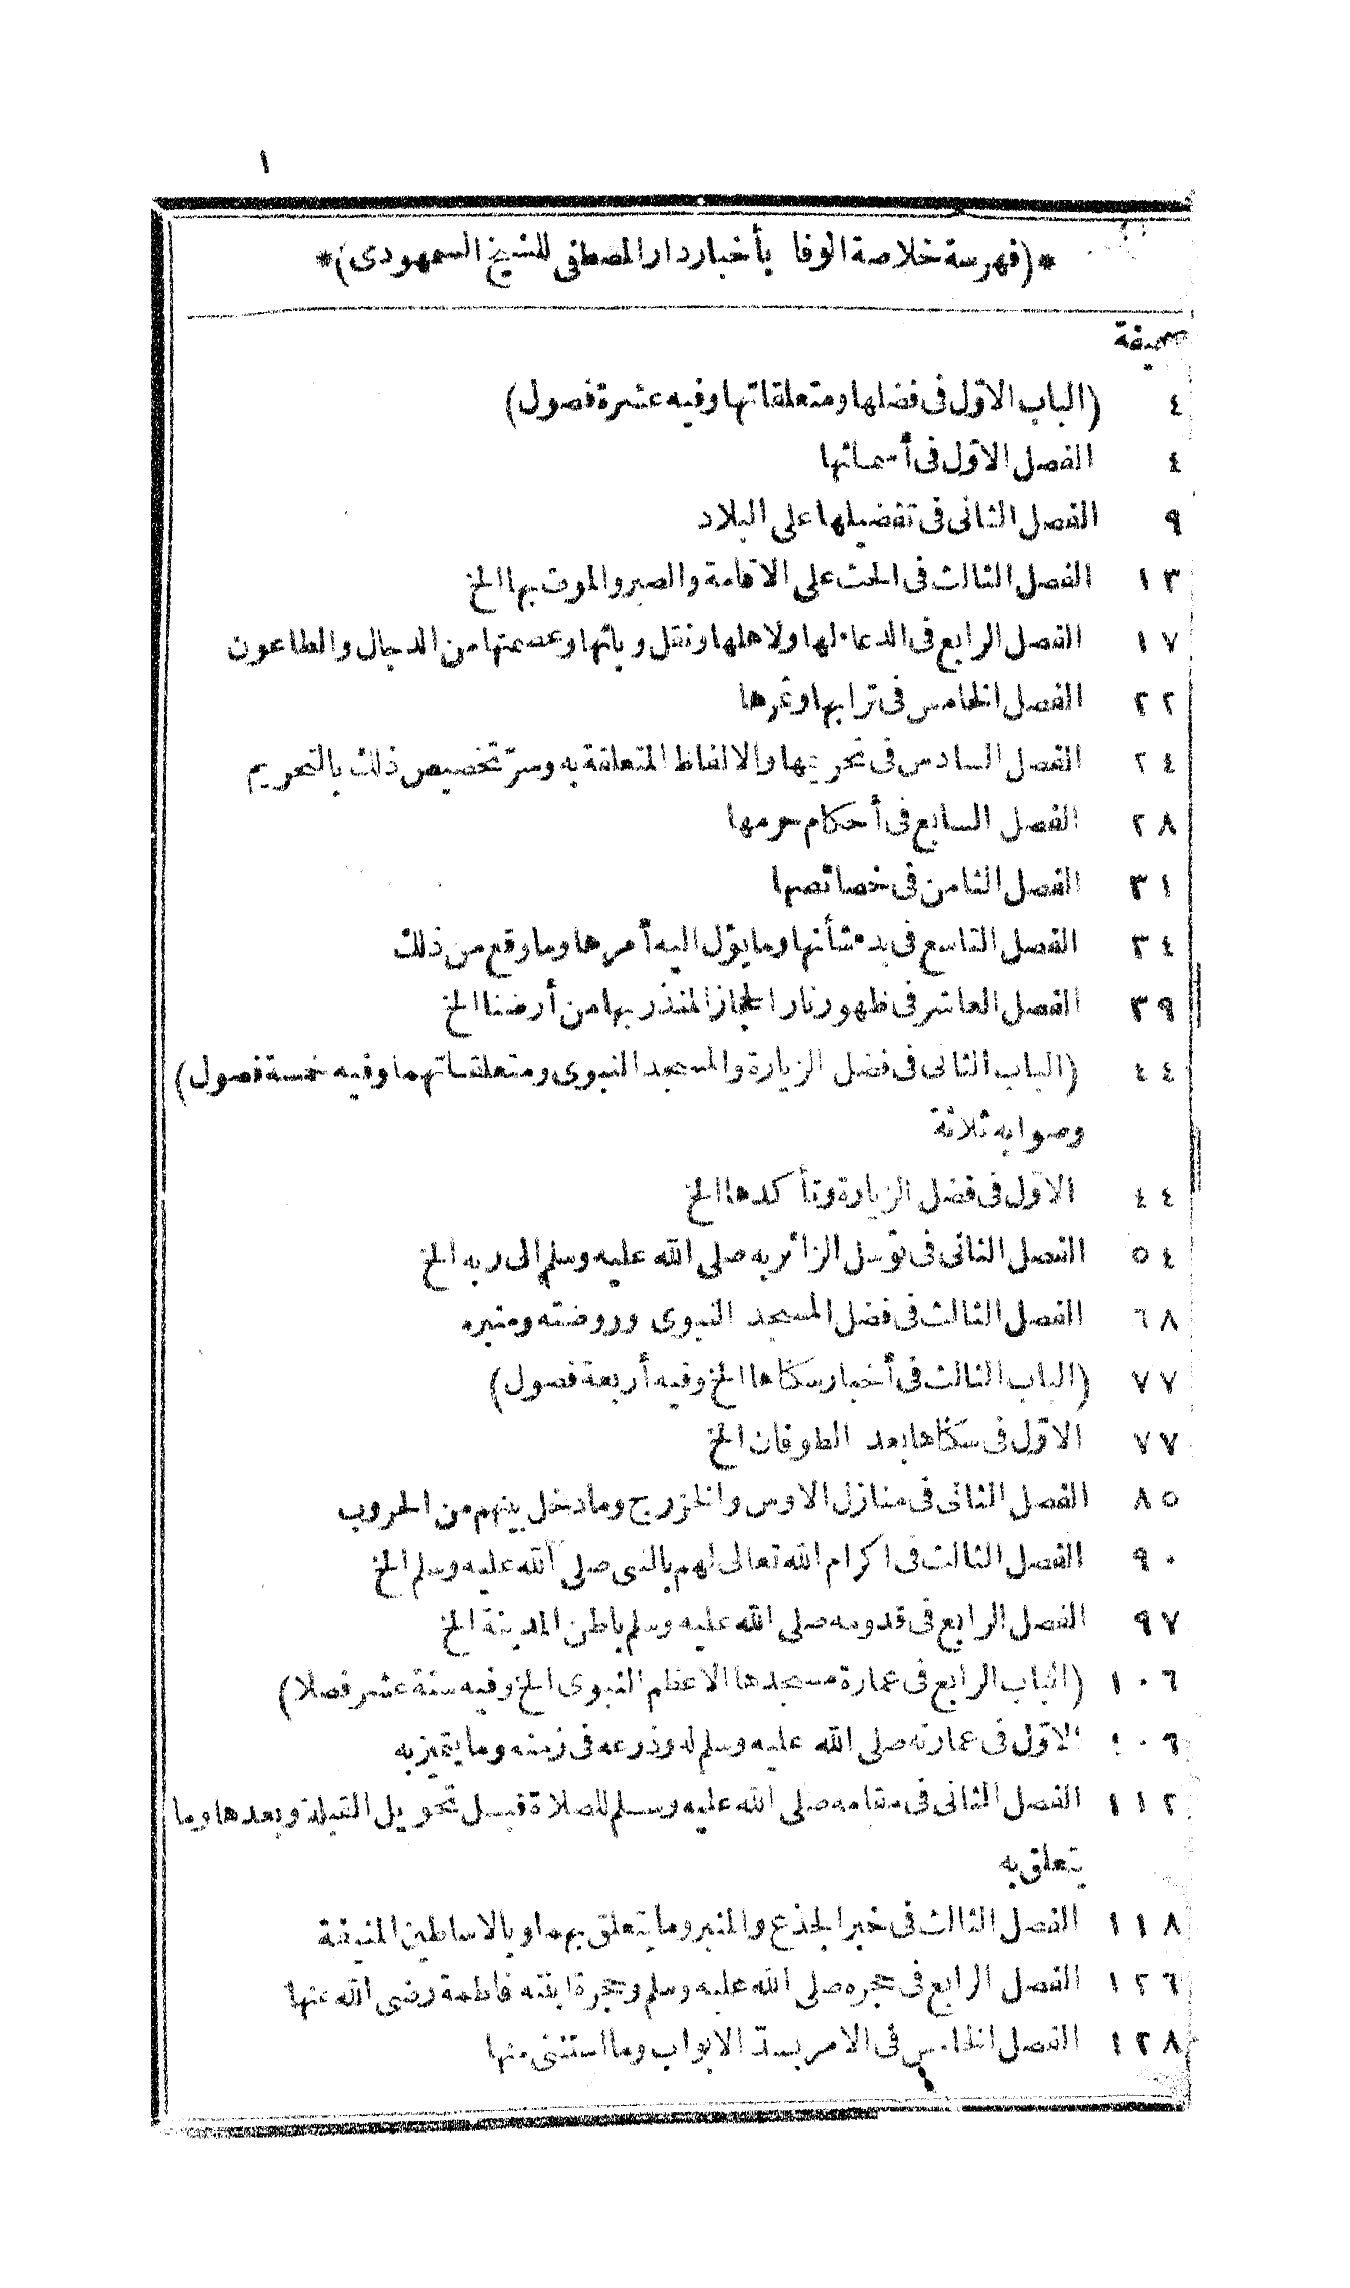 ١
*(فهرسة خلاصة الوفا بأخبار دار المصطفى للشيخ السمهودى)*
صحيفة
٤ (الباب الاوّل فى فضلها ومتعلقاتها وفيه عشرة فصول)
٤ الفصل الاوّل فى أسمائها
٩ الفصل الثانى فى تفضيلها على البلاد
١٣ الفصل الثالث فى الحث على الاقامة والصبر والموت بها الخ
١٧ الفصل الرابع فى الدعاء لها ولاهلها ونقل وبائها وعصمتها من الدجال والطاعون
٢٢ الفصل الخامس فى ترابها وثمرها
٢٤ الفصل السادس فى تحريمها والالفاظ المتعلقة به وسرّ تخصيص ذلك بالتحريم
٢٨ الفصل السابع فى أحكام حرمها
٣١ الفصل الثامن فى خصائصها
٣٤ الفصل التاسع فى بدء شأنها وما يؤل اليه أمرها وما وقع من ذلك
٣٩ الفصل العاشر فى ظهور نار الحجاز المنذر بها من أرضنا الخ
٤٤ (الباب الثانى فى فضل الزيارة والمسجد النبوى ومتعلقاتهما وفيه خمسة فصول)
وصوابه ثلاثة
٤٤ الاوّل فى فضل الزيارة وتأكدها الخ
٥٤ الفصل الثانى فى توسل الزائر به صلى الله عليه وسلم الى ربه الخ
٦٨ الفصل الثالث فى فضل المسجد النبوى وروضته ومنبره
٧٧ (الباب الثالث فى أخبار سكاها الخ وفيه أربعة فصول)
٧٧ الاوّل فى سكاها بعد الطوفان الخ
٨٥ الفصل الثانى فى منازل الاوس والخزرج وما دخل بينهم من الحروب
٩٠ الفصل الثالث فى اكرام الله تعالى لهم بالنبى صلى الله عليه وسلم الخ
٩٧ الفصل الرابع فى قدومه صلى الله عليه وسلم باطن المدينة الخ
١٠٦ (الباب الرابع فى عمارة مسجدها الاعظم النبوى الخ وفيه ستة عشر فصلا)
١٠٦ الاوّل فى عمارته صلى الله عليه وسلم له وذرعه فى زمنه وما يتميز به
١١٢ الفصل الثانى فى مقامه صلى الله عليه وسلم للصلاة قبل تحويل القبلة وبعدها وما
يتعلق به
١١٨ الفصل الثالث فى خبر الجذع والمنبر وما يتعلق بهما وبالاساطين المنيفة
١٢٦ الفصل الرابع فى حجره صلى الله عليه وسلم وحجرة ابنته فاطمة رضى الله عنها
١٢٨ الفصل الخامس فى الامر بسدّ الابواب وما استثنى منها